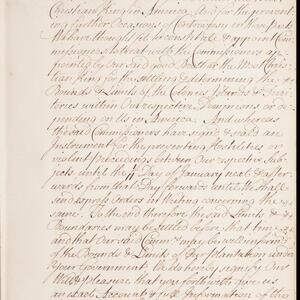 Christian King in America And for the prevent
ing further Occasions of Contention in those parts
We have thought fit to constitute & appoint Com
missioners to treat with the Commissioners ap
pointed by our said good Brother the Most Chris
tian King for the settling & determining the
Bounds & Limits of the Colonies Islands & Terri
tories within Our respective Dominions or de
pending on Us in America. And whereas
the said Commissioners have signed & sealed an
Instrument for the preventing Hostilities or
violent proceedings between Our respective Sub
jects until the Day of January next & after
wards from that Day forwards until We shall
send express orders in Writing concerning the
same. To the end therefore the said Limits &
Boundaries may be settled before that time
and that Our said Comrs may be well inform'd
of the Bounds & Limits of Our plantation under
Your Government, We do hereby signify Our
Will & pleasure that You forthwith give us
an exact Account & full Information of the